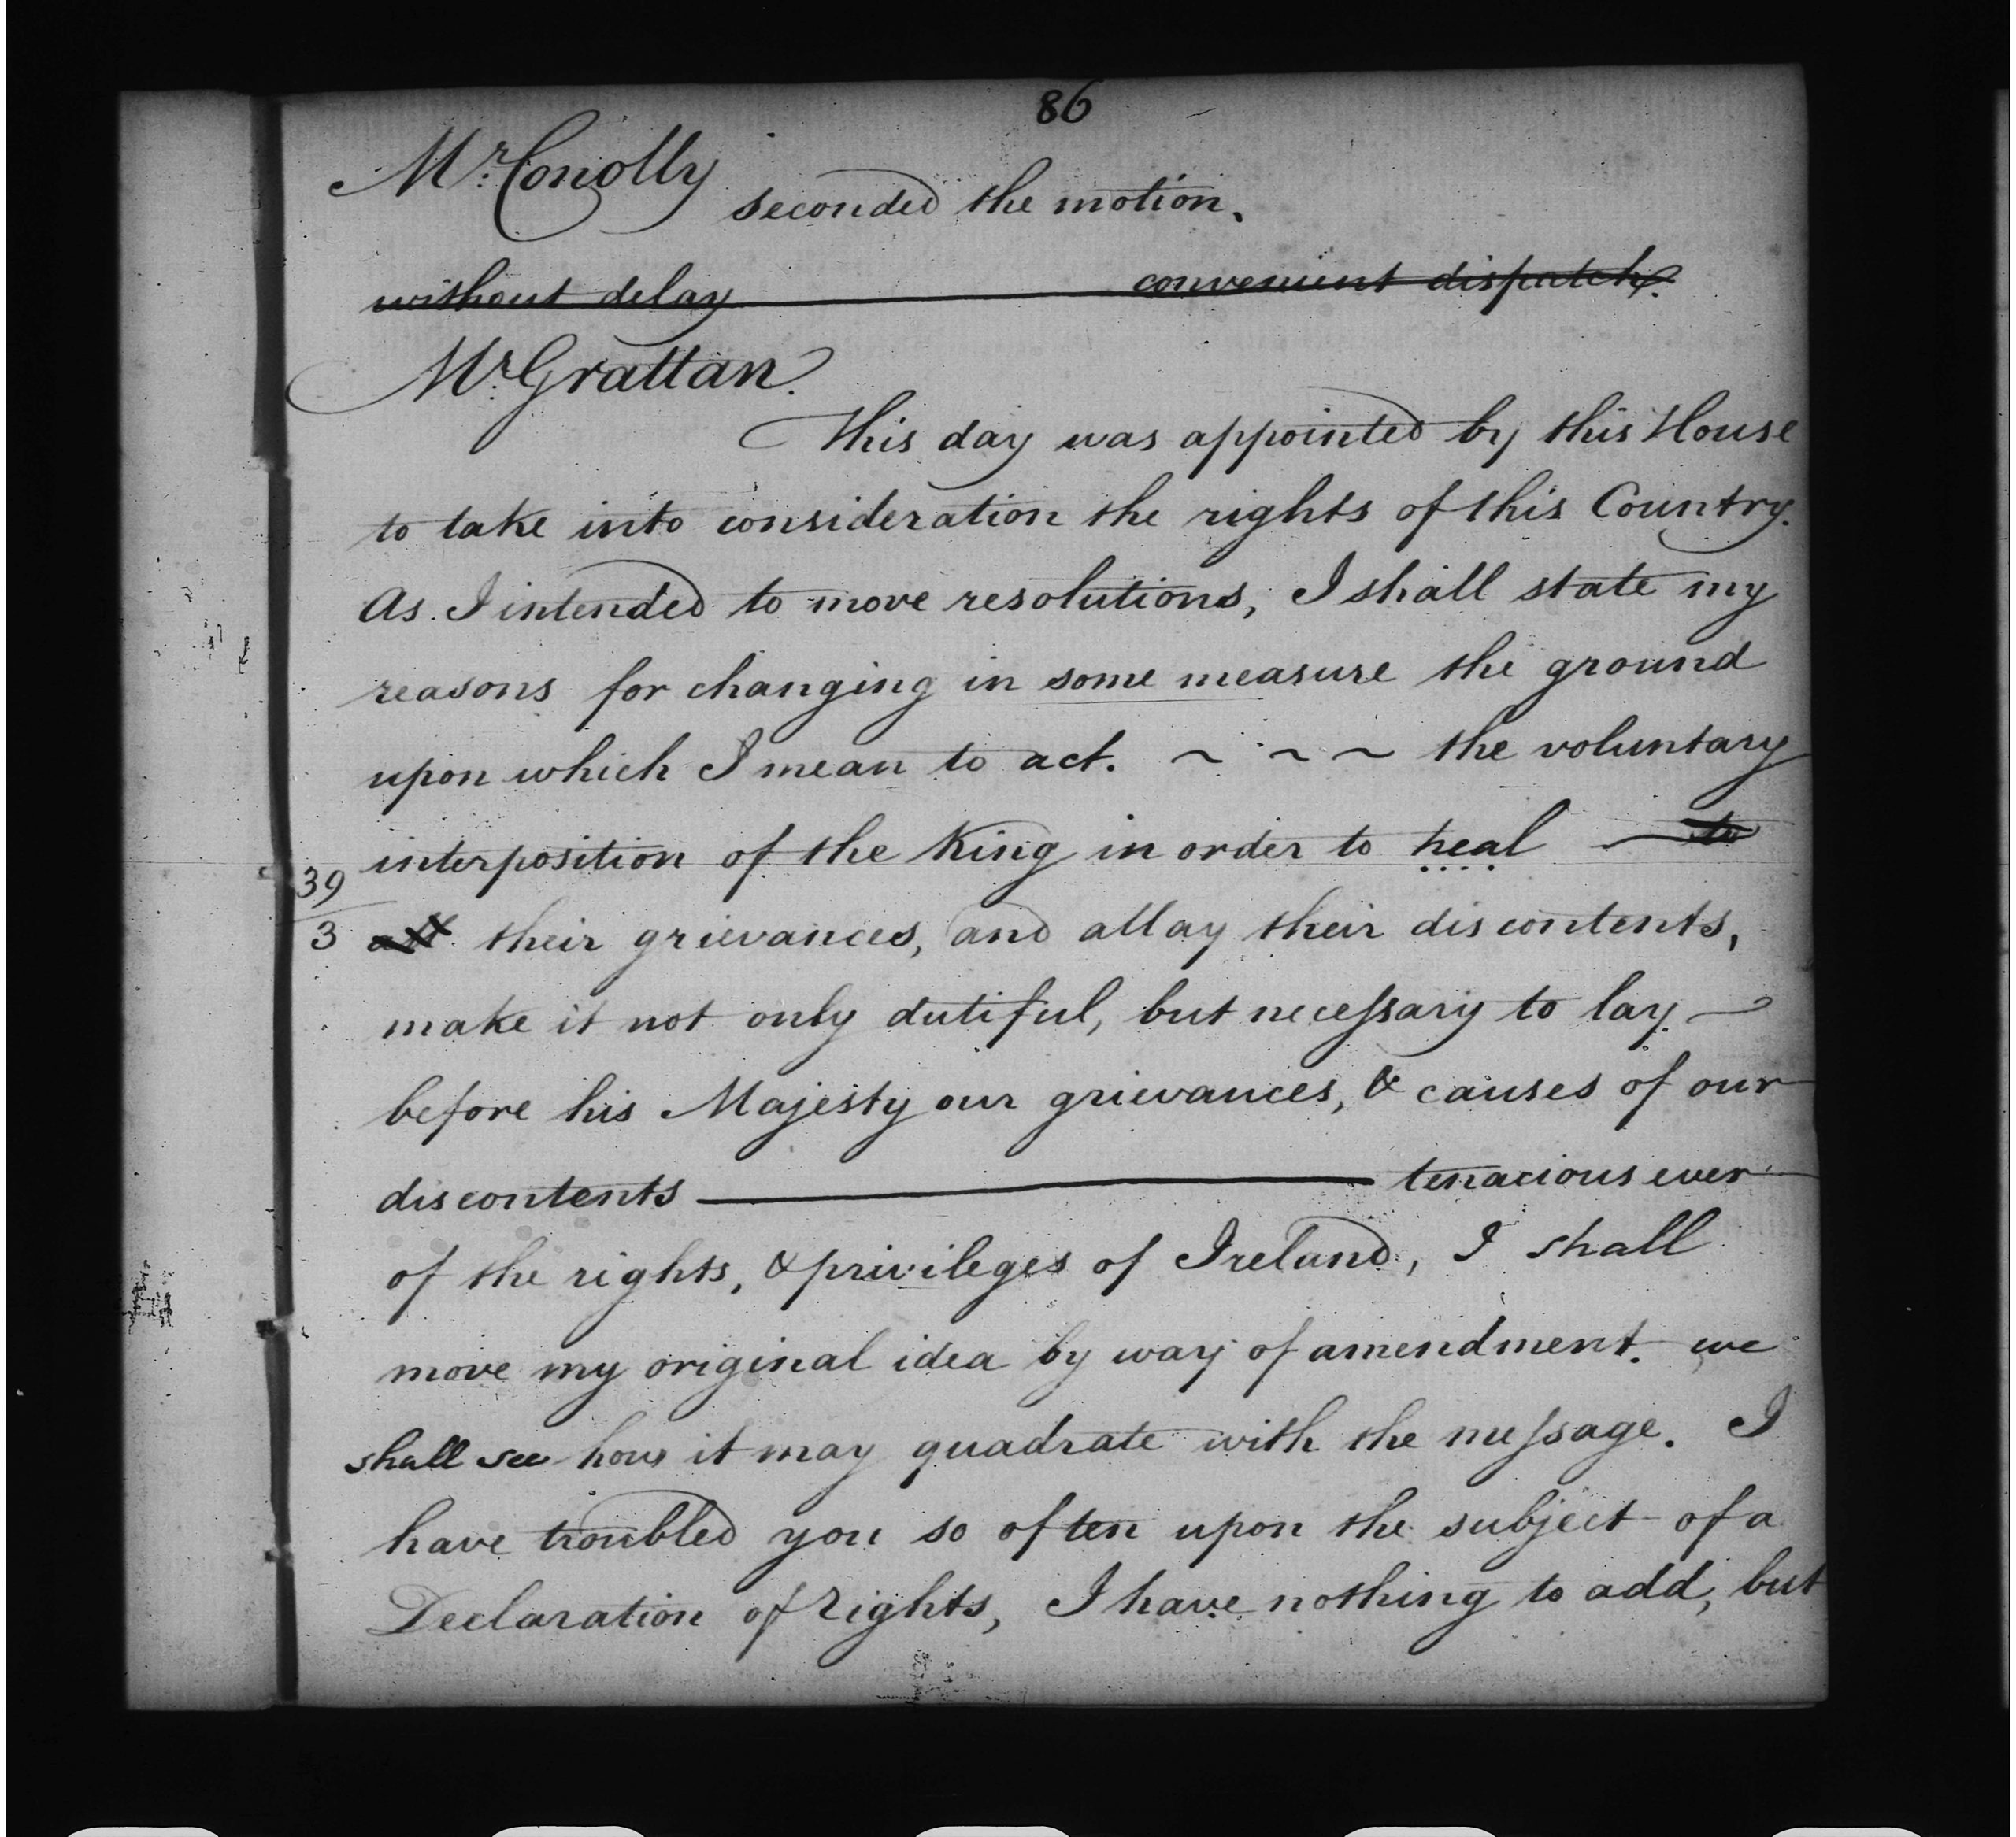 86
Mr. Conolly
seconded the motion.
without delay ——— convenient dispatch.
Mr. Grattan.
This day was appointed by this House
to take into consideration the rights of this Country.
As I intended to move resolutions, I shall state my
reasons for changing in some measure the ground
upon which I mean to act. ~ ~ ~ the voluntary
interposition of the King in order to heal — to
39
3 all their grievances, and allay their discontents,
make it not only dutiful, but necessary to lay —
before his Majesty our grievances, & causes of our
discontents ——— tenacious ever
of the rights, & privileges of Ireland, I shall
move my original idea by way of amendment. we
shall see how it may quadrate with the message. I
have troubled you so often upon the subject of a
Declaration of rights, I have nothing to add, but